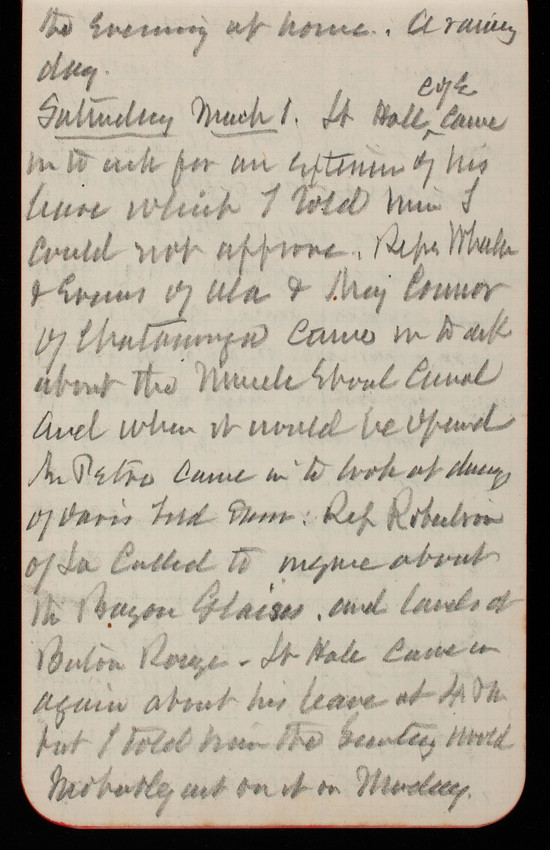 the Evening at home. A rainy
day.
Saturday March 1. Lt Hall, came
in to ask for an extension of his
leave which I told him I
could not approve. Reps Wheeler
& Evans of Ala & Maj Connor
of Chatanooga came in to ask
about the Muscle Shoal Canal
And when it would be opened
Mr Petro came in to look at
of Davis Isld Dam: Rep Robertson
of La Called to inquire about
the Bayou Glaises, and lands at
Baton Rouge - Lt Hale came in
again about his leave at 4
but I told him the Secretary would
Probably act on it on Monday.